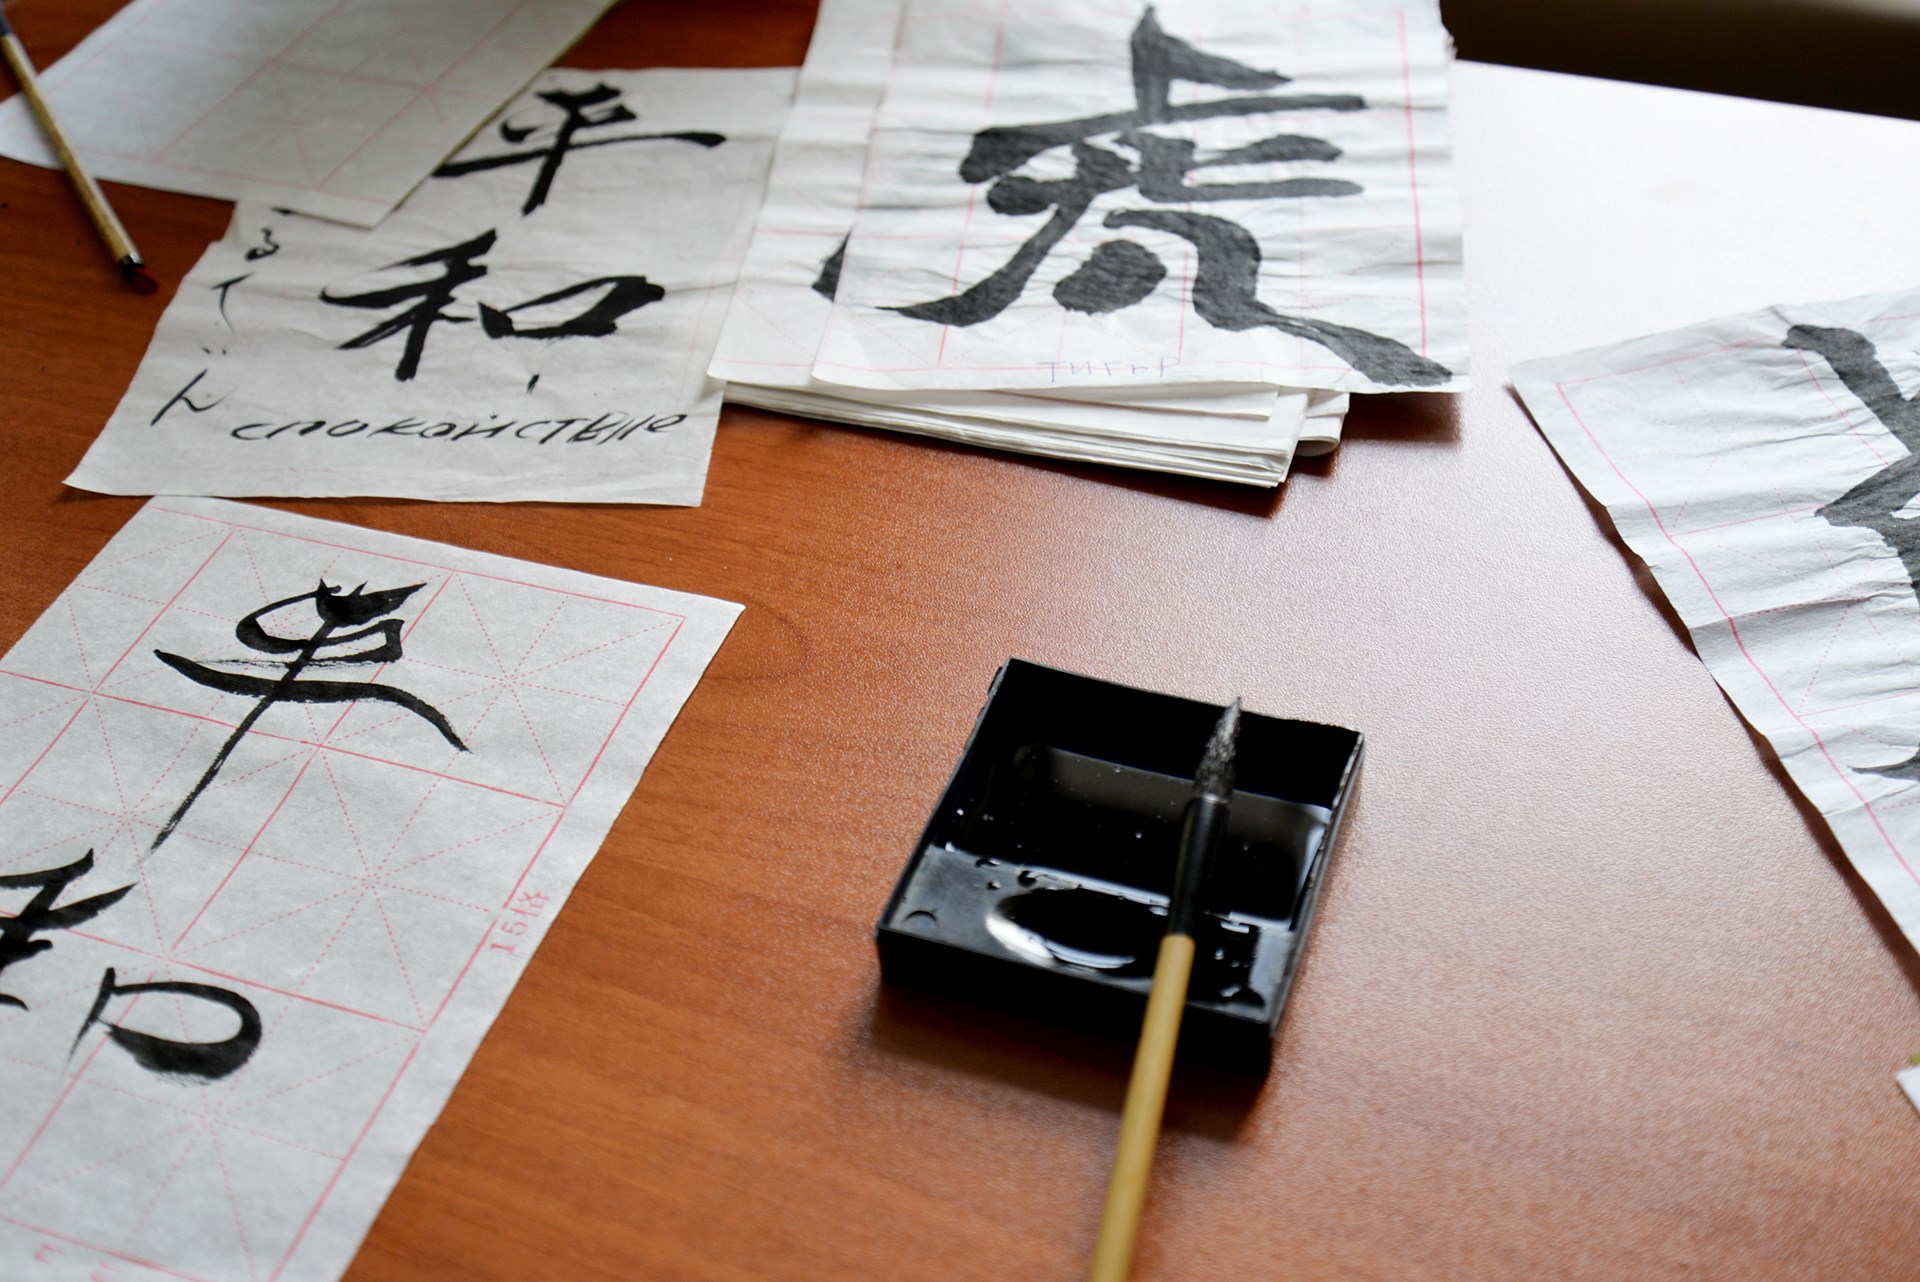 平
和
спокойствие
虎
тигър
平
和
15格